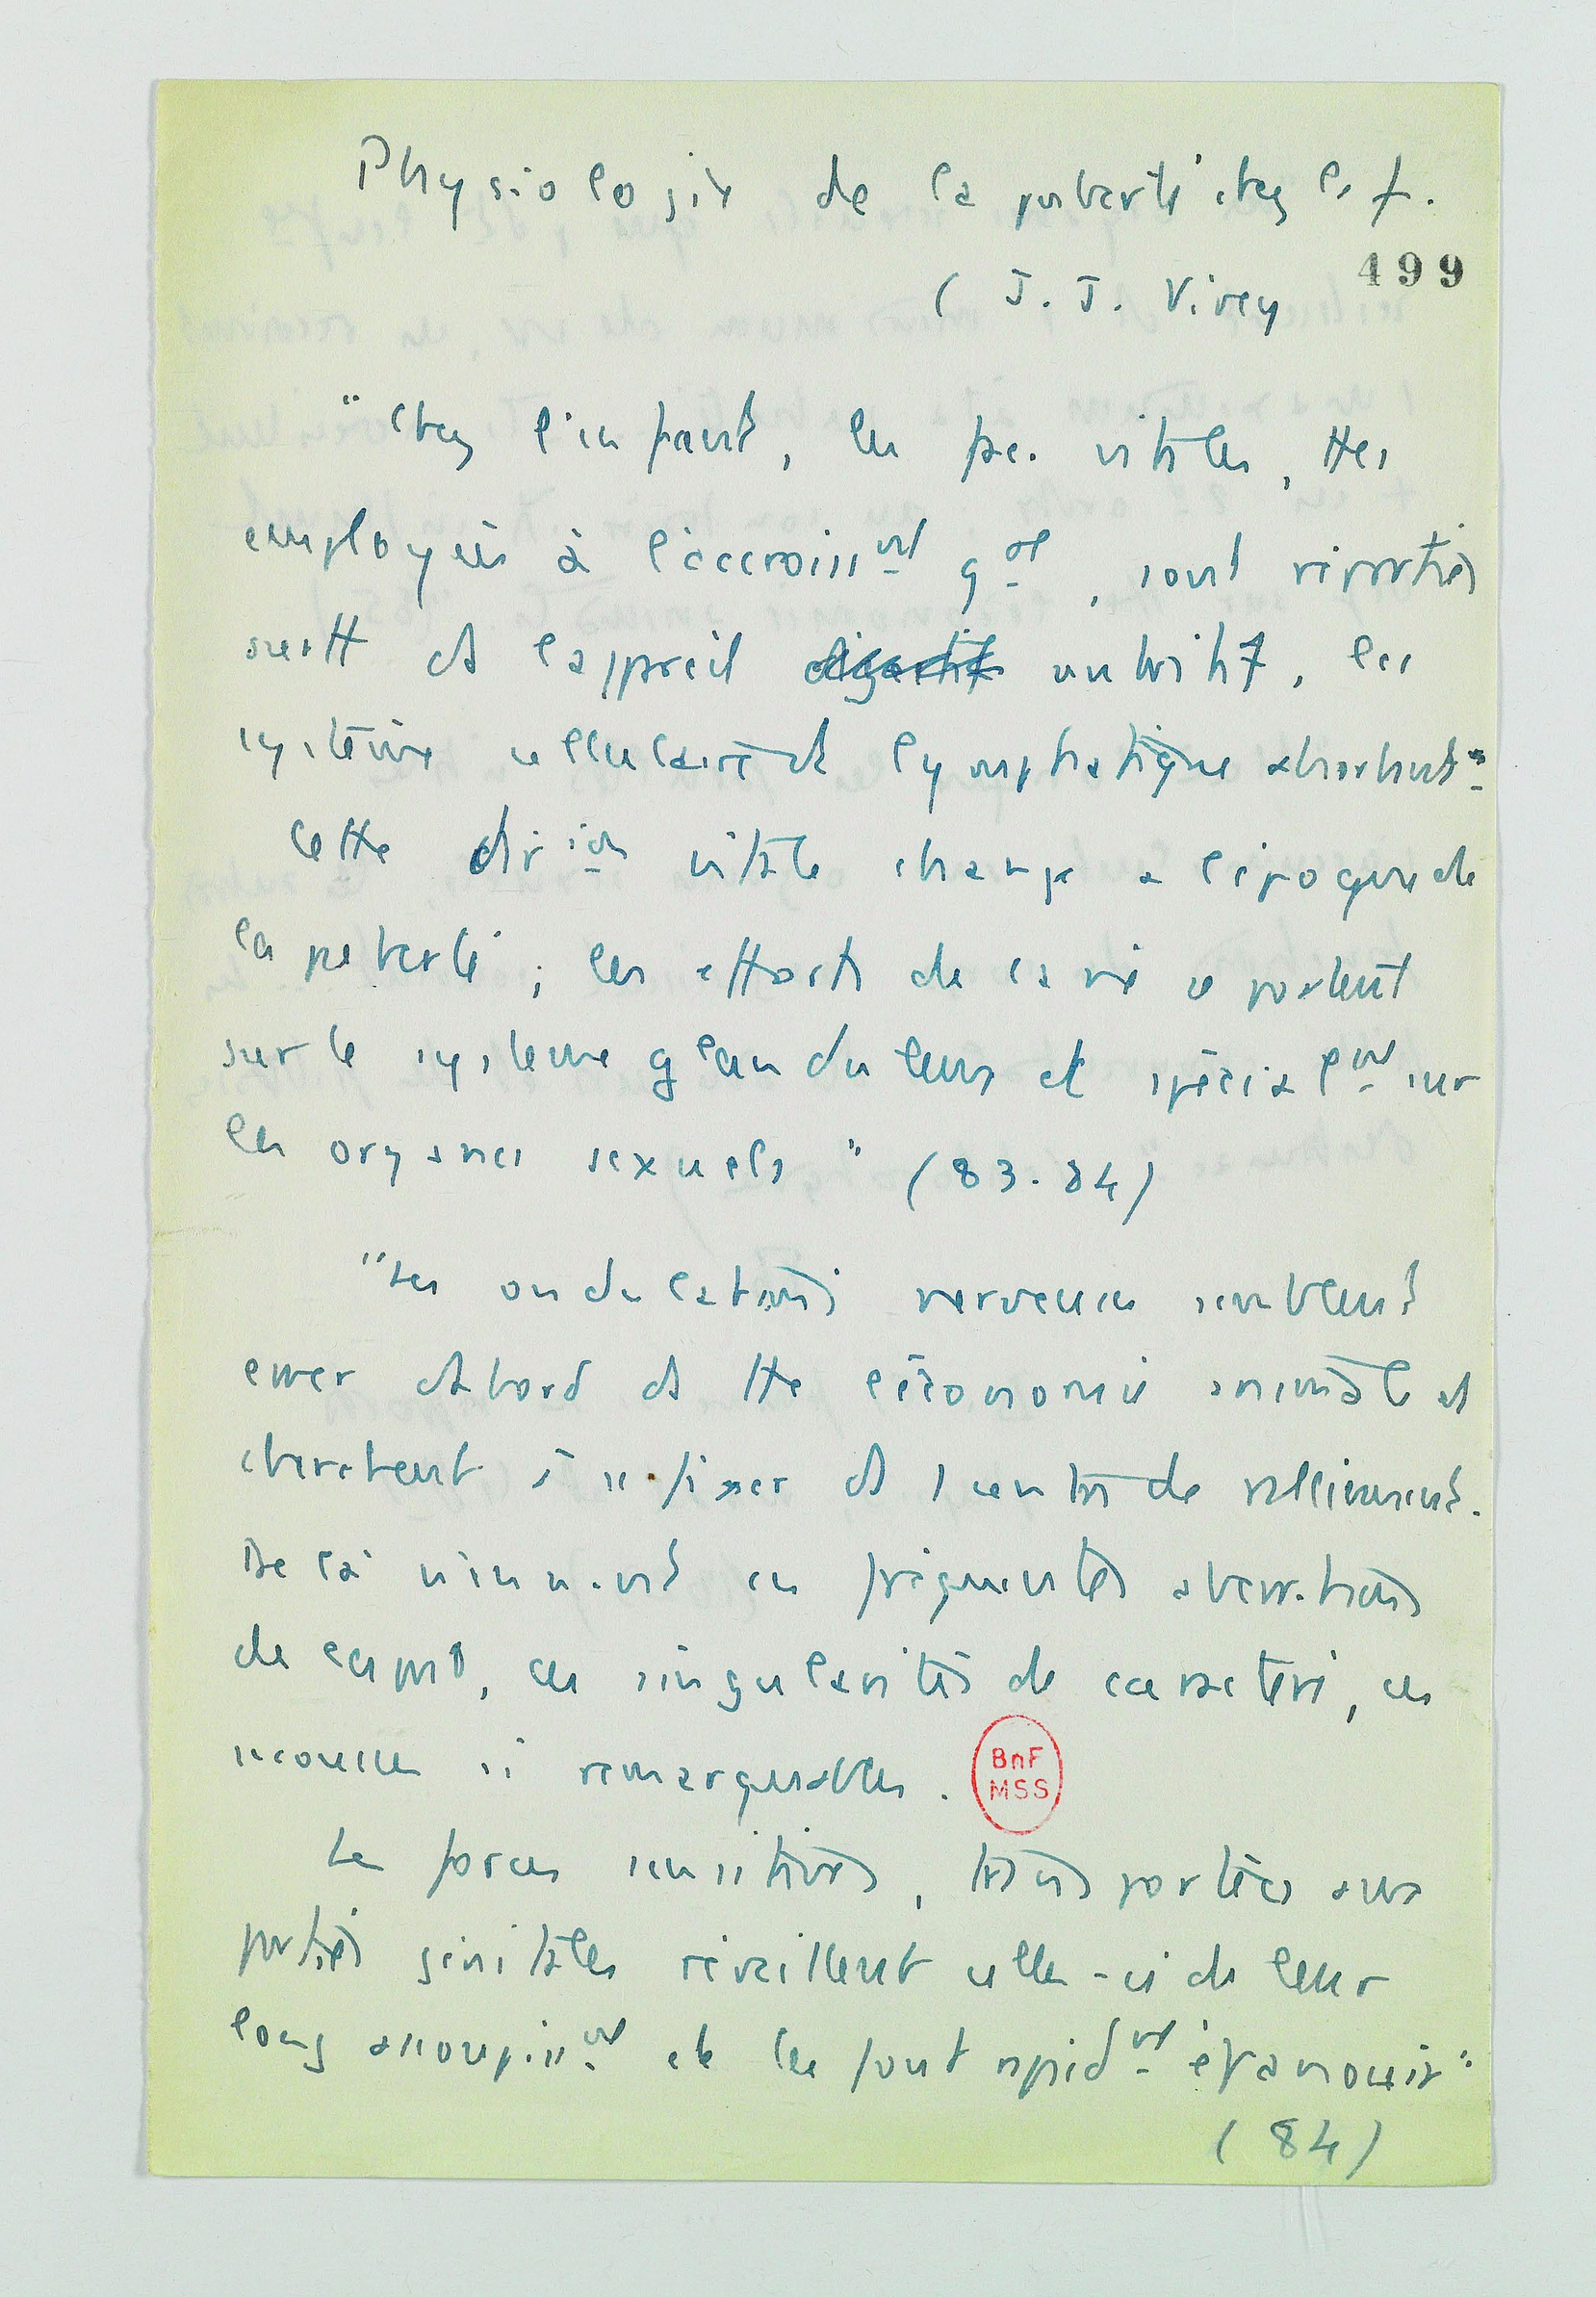 Physiologie de la puberté chez les f.
499
( J. J. Virey
"Chez l'enfant, les fac. vitales, ttes
employées à l'accroissmt gal, sont réparties
surtt ds l'appareil digestif nutritif, les
système cellulaire et lymphatique absorbant."
Cette dirion vitale change a l'époque de
la puberté ; les efforts de la vie se portent
sur le système glanduleux et spécialmt sur
les organes sexuels" (83.84)
"Les ondulations nerveuses semblent
errer d'abord ds tte l'économie animale et
cherchent à se fixer ds 1 centre de ralliement.
De là viennent ces fréquentes aberrations
de esprit, ces singularités de caractère, ces
secousses si remarquables.
BnF
MSS
Les forces sensitives, transportées aux
parties génitales réveillent celles-ci de leur
long assoupissmt et les font rapidmt épanouir"
(84)